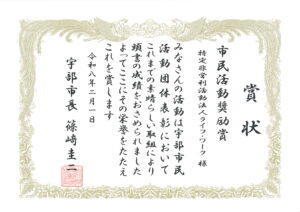 賞状
市民活動奨励賞
特定非営利活動法人ライフ・ワーク 様
みなさんの活動は宇部市民
活動団体表彰において
これまでの素晴らしい取組により
頭書の成績をおさめられました
よってここにその栄誉をたたえ
これを賞します
令和八年二月一日
宇部市長 篠﨑圭二